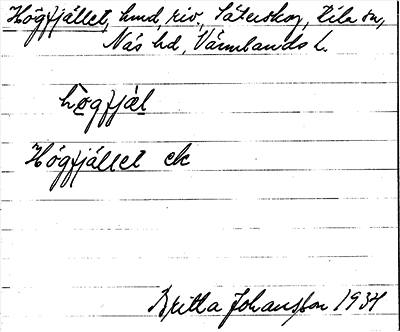 Högfjället, hmd, riv., Säterskog, Kila sn,
Näs hd, Värmlands l.
högfjäl
Högfjället ek
Britta Johansson 1934